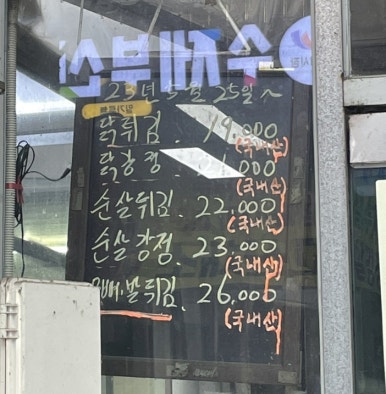 수제부산
23년 5월 25일~
닭튀김. 19.000
(국내산)
닭강정 .000
(국내산)
순살튀김. 22.000
(국내산)
순살강정. 23.000
(국내산)
발튀김. 26,000
(국내산)